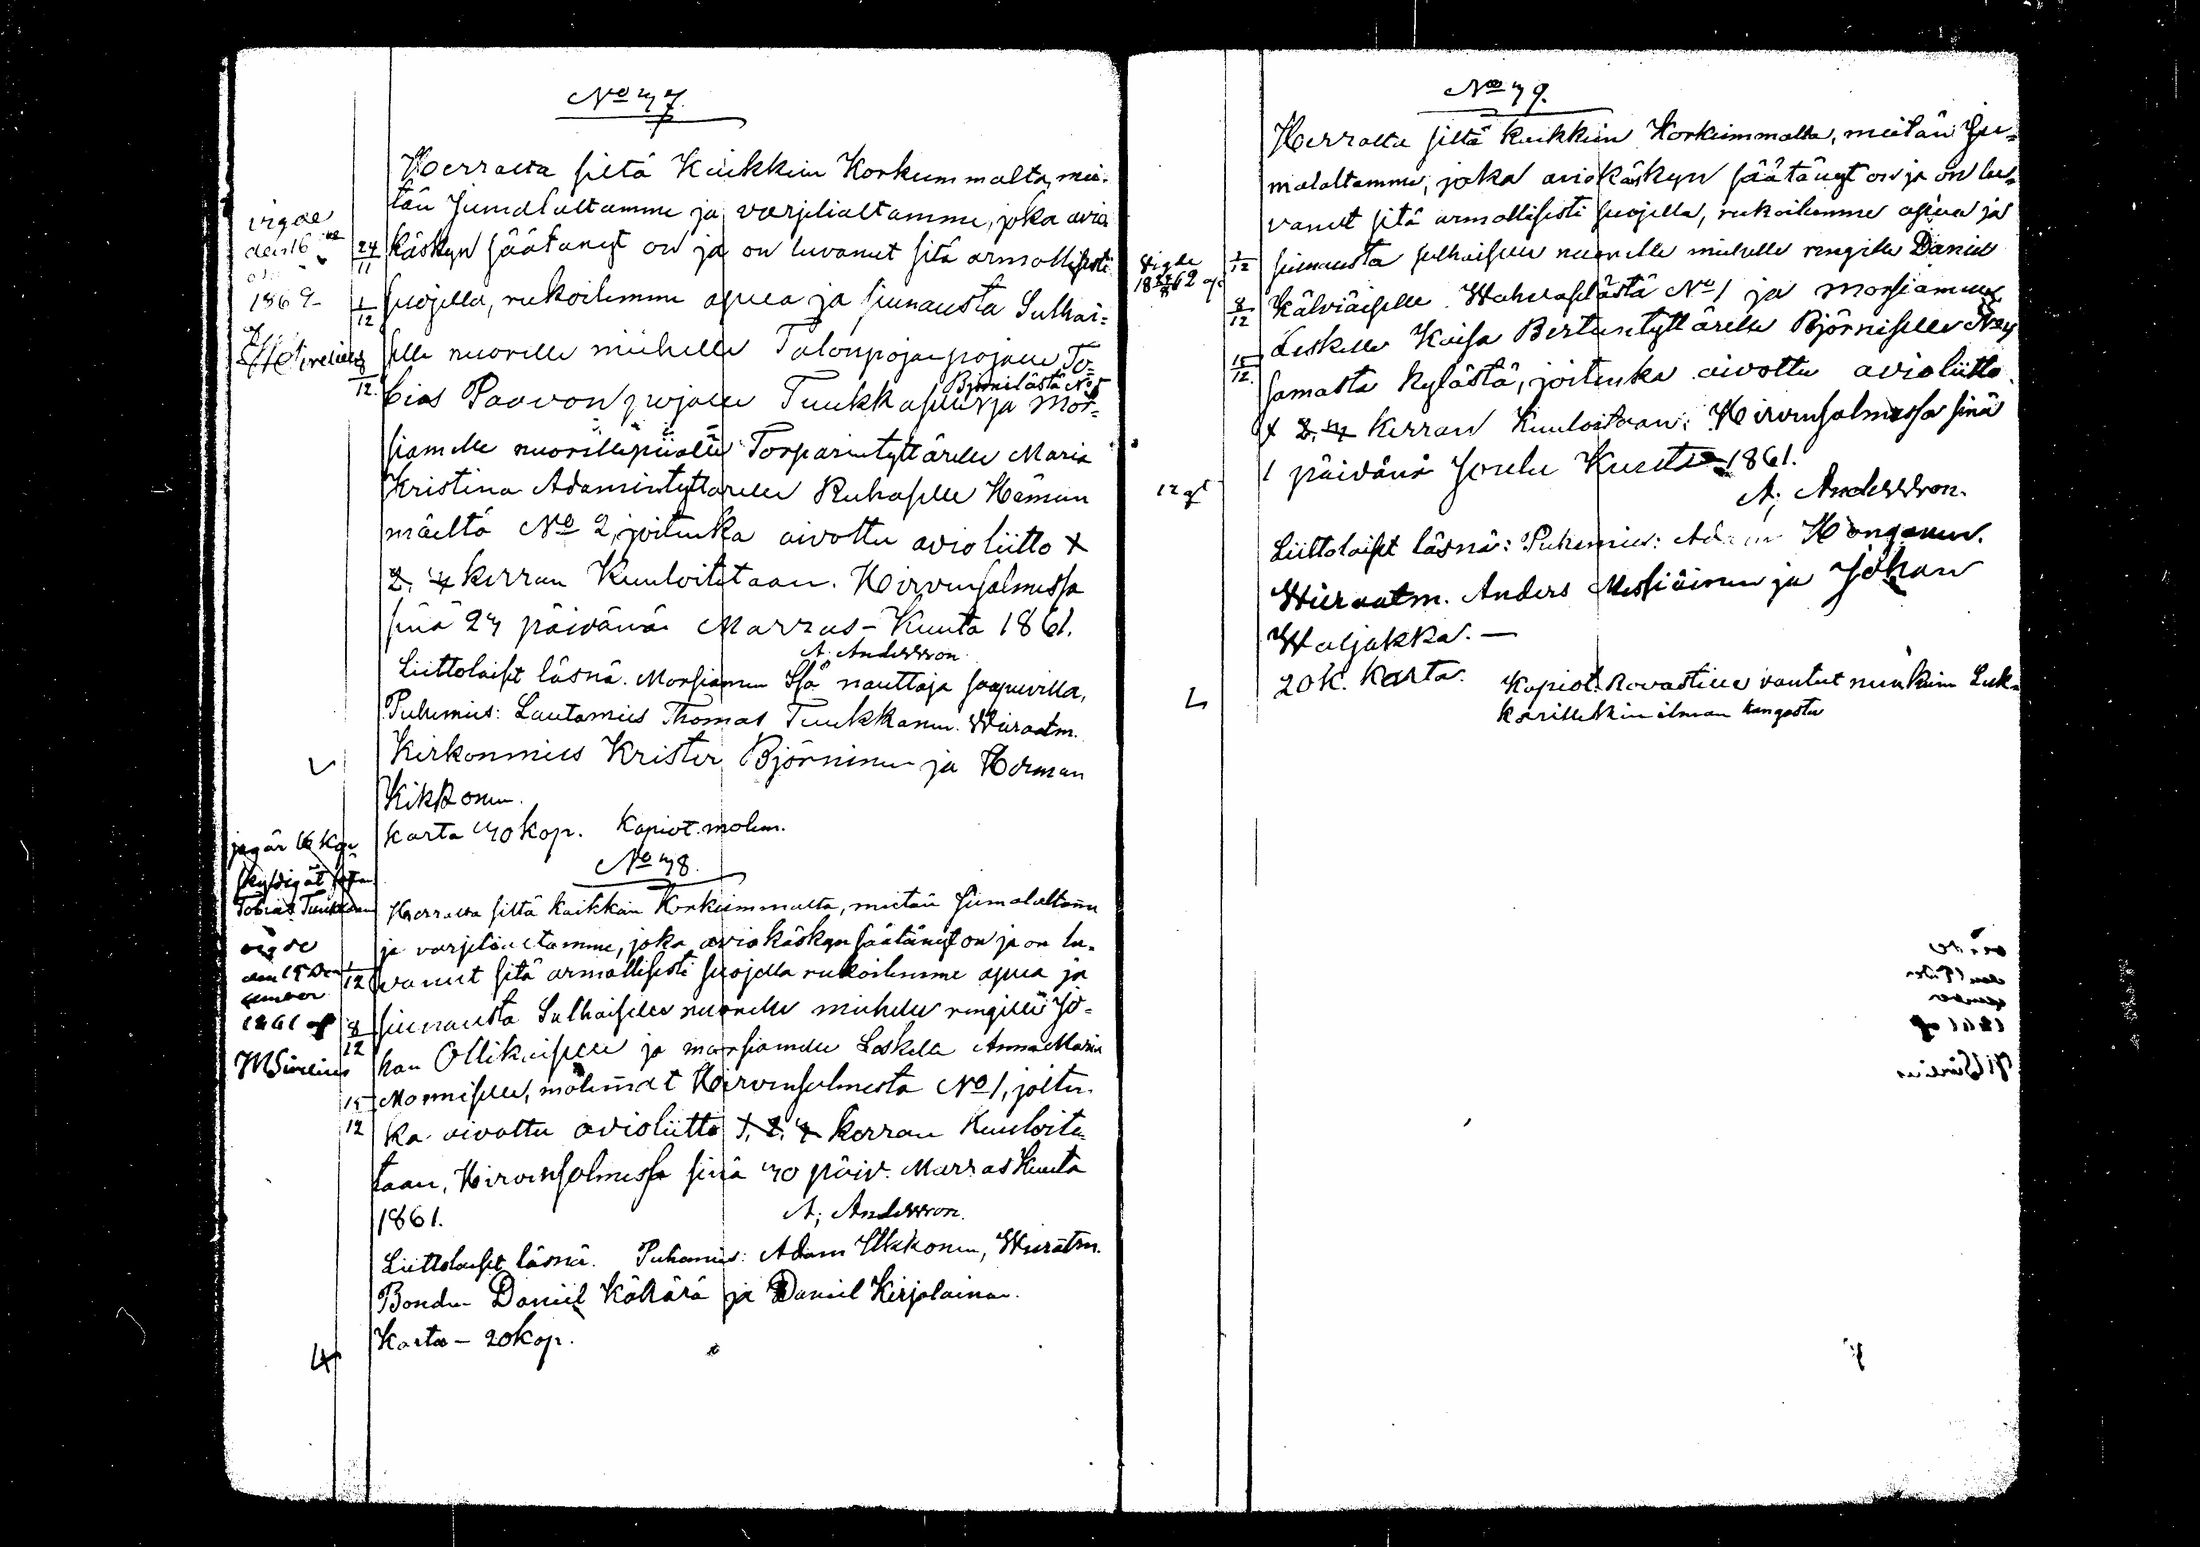 No 37.
Herralta siltä Kaikkein Korkeimmalta, mei-
dän Jumalaltamme ja varjelialtamme, joka avio
Käskyn säätänyt on ja on luvanut sitä armollisesti
suojella, rukoilemme apua ja siunausta Sulhai-
selle nuorelle miehelle Talonpojan pojalle To-
bias Paavon pojalle Tuukkaselle Björnilästä No 5 ja Mor-
siamelle nuorelle piialle Torparintyttärelle Maria
Kristina Adamintyttarelle Ruhaselle Hämeen
mäeltä No 2, joitenka aivottu avioliitto 1
2. 3 kerran Kuuloitetaan. Hirvensalmessa
sinä 23 päivänä Marras-Kuuta 1861.
A. Andersson
Liittolaiset läsnä. Morsiamen Isä nauttaja saapuvilla,
Puhemies: Lautamies Thomas Tuukkanen. Wieraatm.
Kirkonmies Krister Björninen ja Herman
Kikkonen.
Karta 30 kop. Kapiot. molem.
vigde
den 16
1862
24/11
1/12
8/12
No 38.
Herralta siltä Kaikkein Korkeimmalta, meidän Jumalaltamme
ja varjelialtamme, joka avio käskyn säätänyt on ja on lu-
vanut sitä armollisesti suojella rukoilemme apua ja
siunausta Sulhaiselle nuorelle miehelle rengille Jo-
han Ollikaiselle ja morsiamelle Leskelle Anna Maria
Monniselle, molemmat Hirvensalmesta No 1, joiten-
ka aivottu avioliitto 1. 2. 3 kerran Kuuloite-
taan, Hirvensalmessa sinä 30 päiv. Marras Kuuta
1861.
A; Andersson.
Liittolaiset läsnä. Puhemies: Adam Ukkonen, Wieratm.
Bonden Daniel Köhärä ja Daniel Kirjalainen.
Karta - 20 kop.
jag är 16 Kop
skyldig åt
Tobias Tuukkanen
vigde
den 15 De-
cember
1861 af
M Sirelius
1/12
8/12
15/12
No 39.
Herralta siltä kaikkein Korkeimmalta, meidän Ju-
malaltamme, joka aviokäskyn säätänyt on ja on lu-
vanut sitä armollisesti suojella, rukoilemme apua ja
siunausta sulhaiselle nuorelle miehelle rengille Daniel
Kälviäiselle Wahvaselästä No 1 ja Morsiamelle
Leskelle Kaisa Bertuntyttärelle Björniselle No 4
samasta kylästä, joitenka aivottu avioliitto
1 2. 3 kerran Kuuloitetaan: Hirvensalmessa sinä
1 päivänä Joulu Kuuta 1861.
A; Andersson.
Liittolaiset läsnä: Puhemies: Adam Honganen.
Wieraatm. Anders Messiäinen ja Johan
Waljakka. -
20 K. Karta. Kapiot. Rovastille vantut niinkuin Luk-
karillekkin ilman kangasta
Vigde
1/12
8/12
15/12.